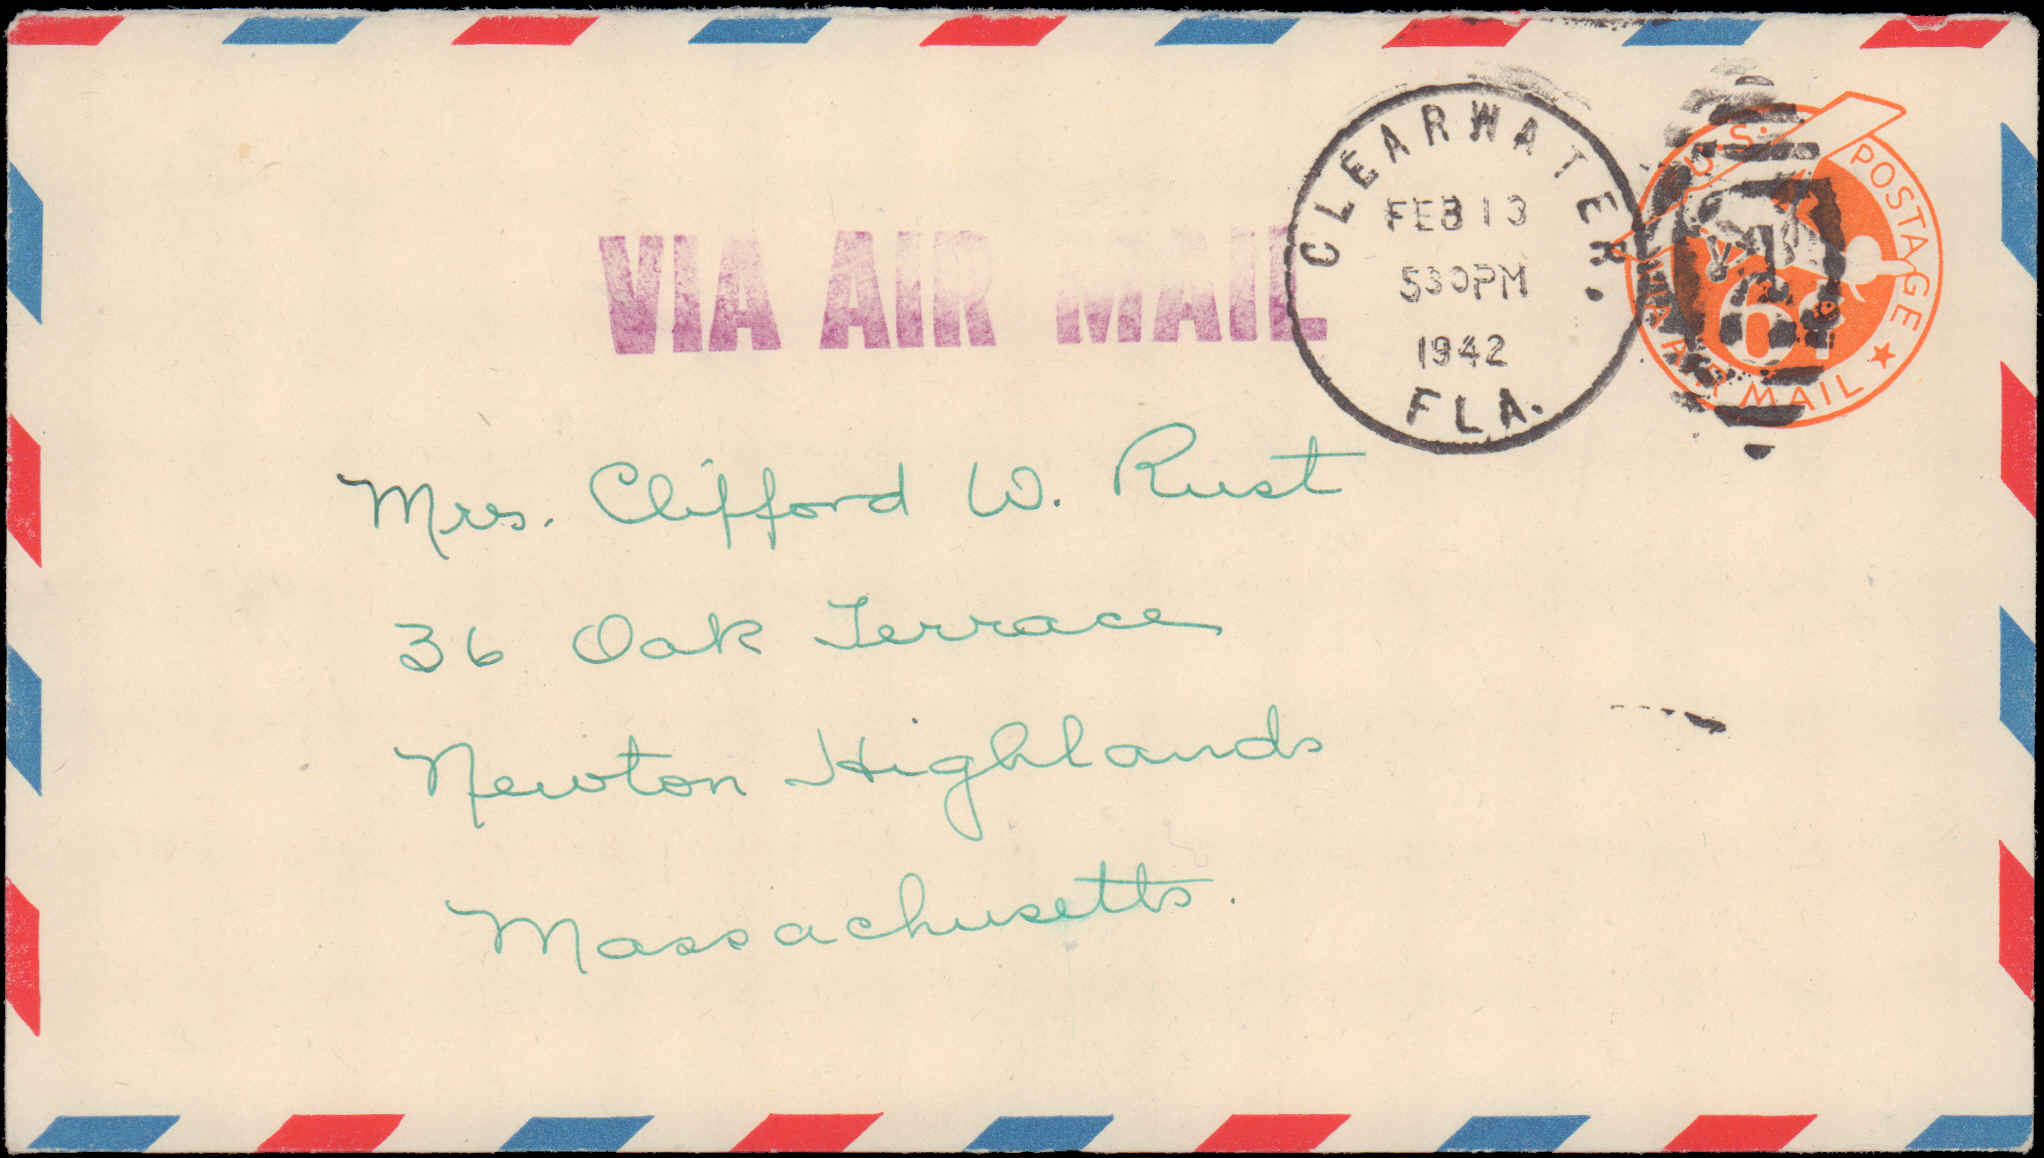 CLEARWATER.
FEB 13
530PM
1942
FLA.
U.S. POSTAGE
VIA AIR MAIL
6¢
VIA AIR MAIL
Mrs. Clifford W. Rust
36 Oak Terrace
Newton Highlands
Massachusetts.